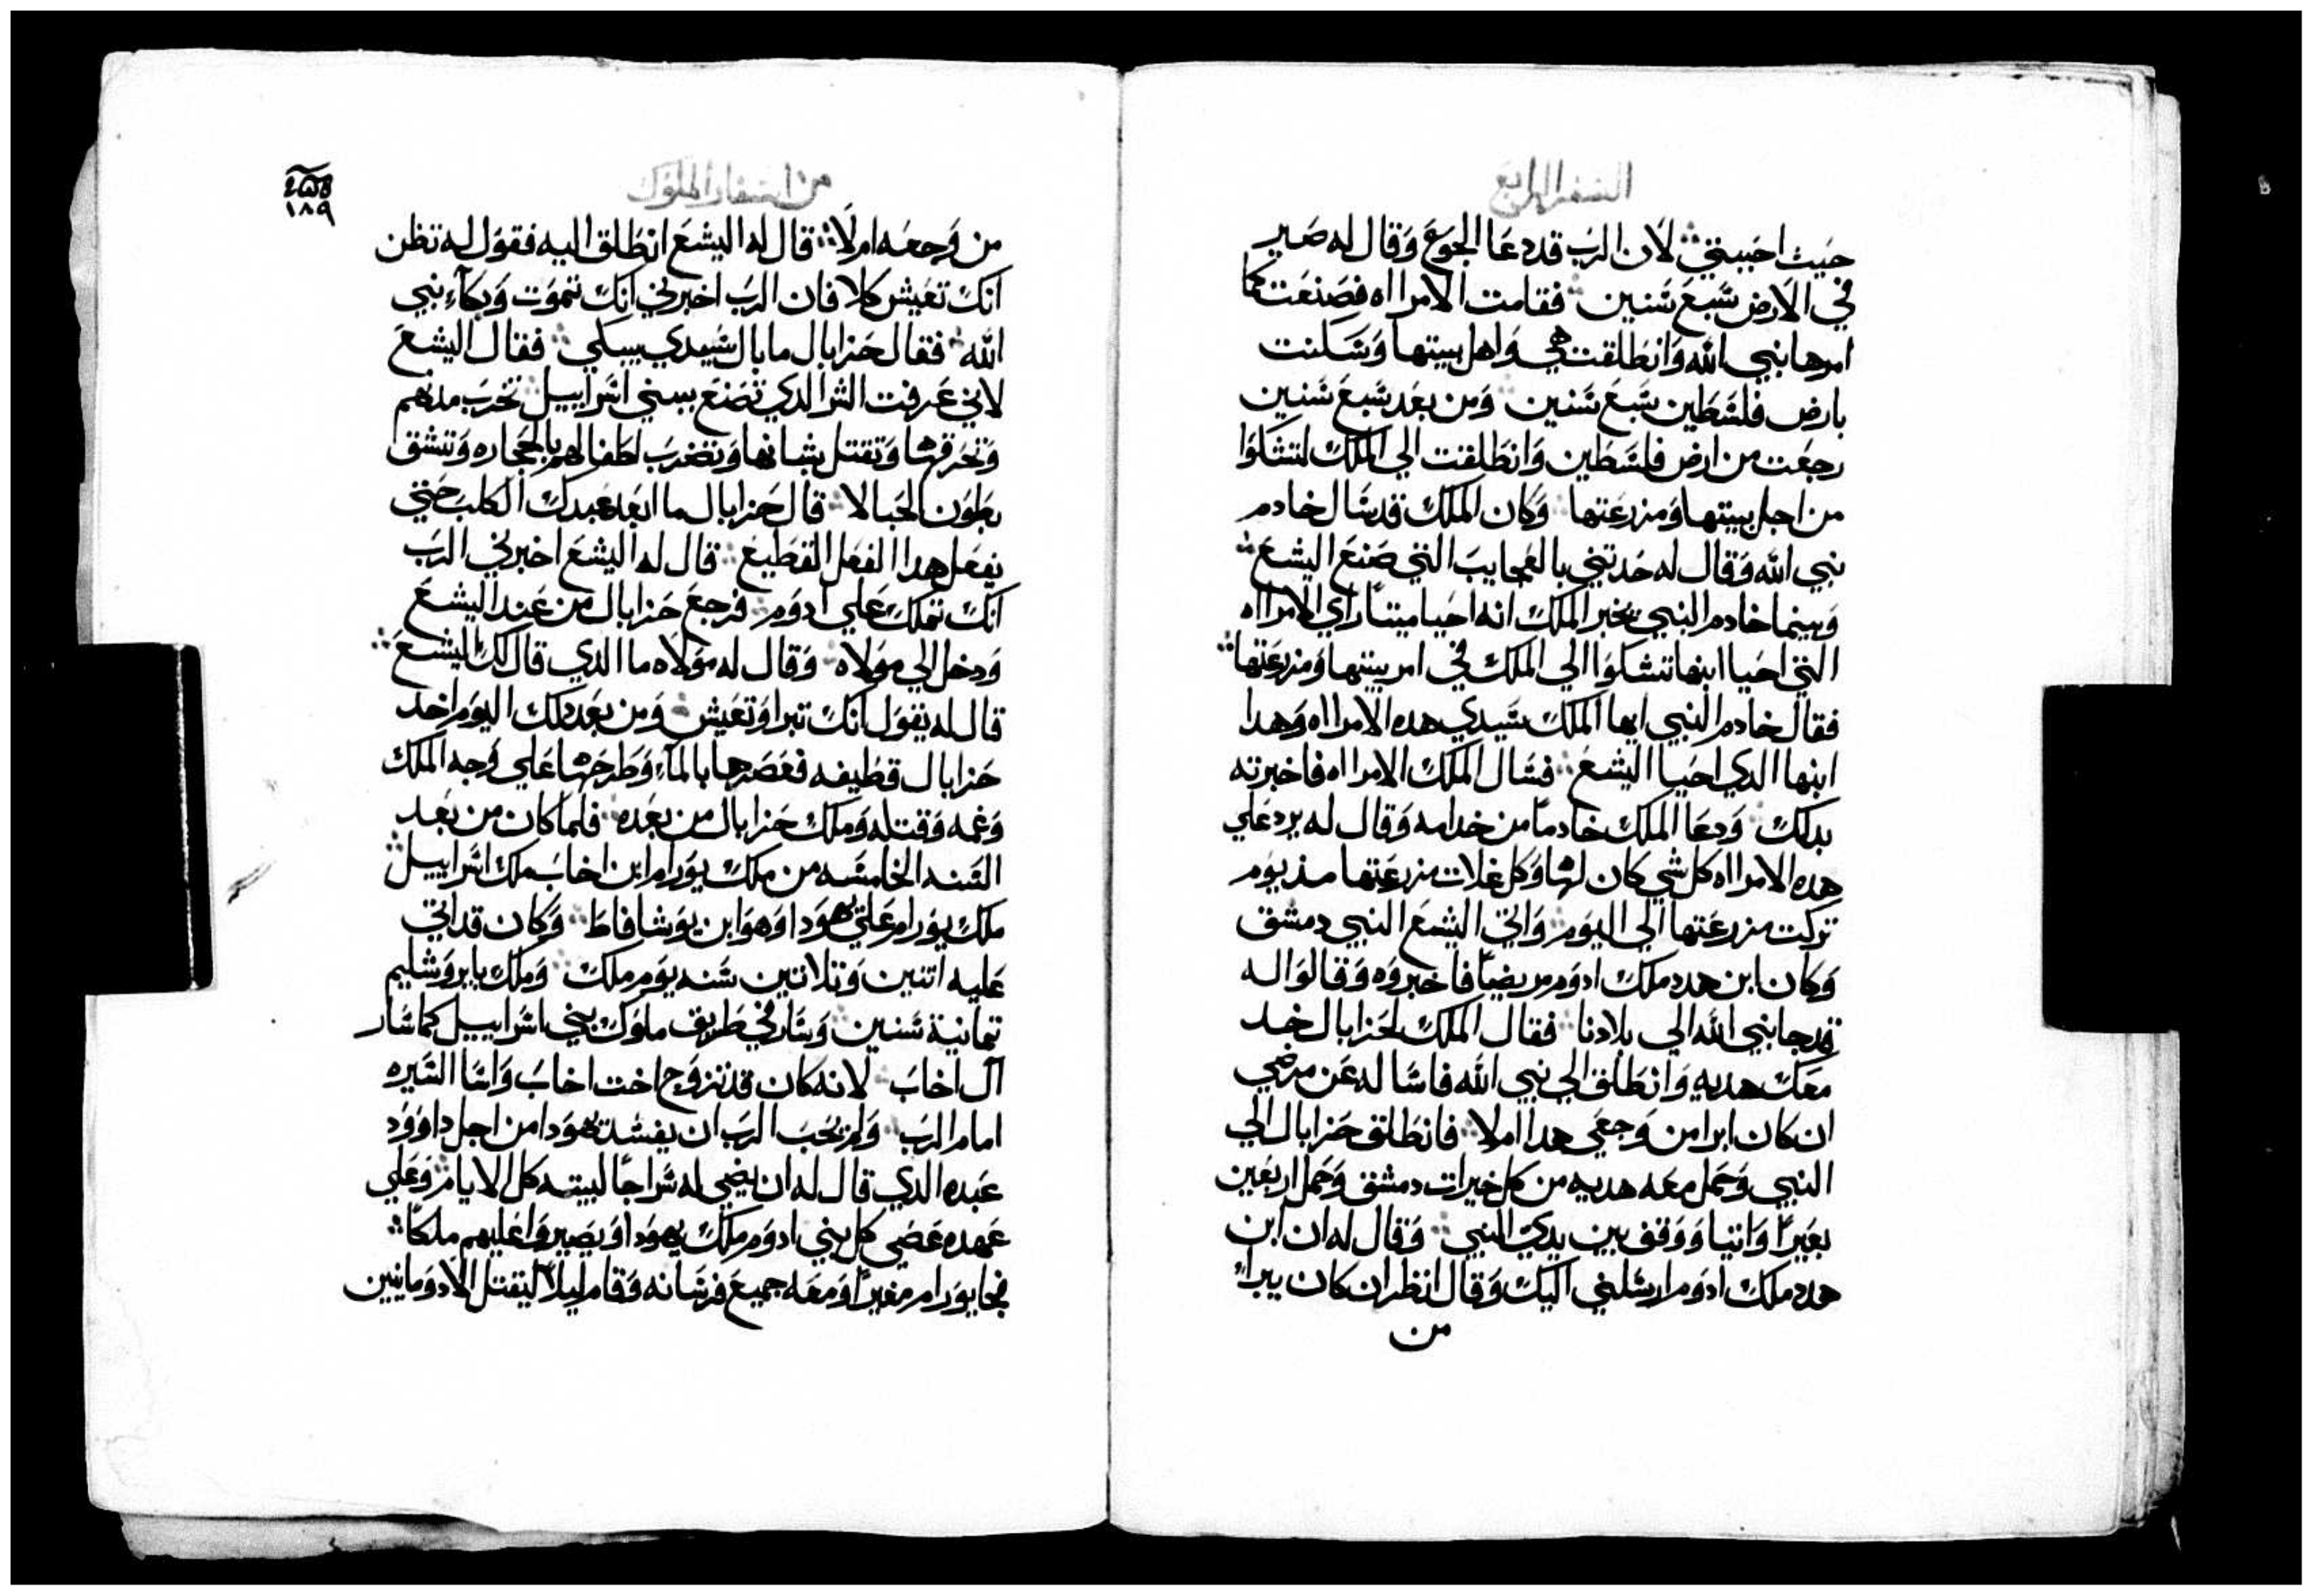 السفر الرابع
حيث احببتي لان الرب قد دعا الجوع وقال له صير
في الارض سبع سنين فقامت الامرااه فصنعت كما
امرها نبي الله وانطلقت هي واهل بيتها وسكنت
بارض فلسطين سبع سنين ومن بعد سبع سنين
رجعت من ارض فلسطين وانطلقت الي الملك لتشكوا
من اجل بيتها ومزرعتها وكان الملك قد سال خادم
نبي الله وقال له حدتني بالعجايب التي صنع اليشع
وبينما خادم النبي يخبر الملك انه احيا ميتا راي الامرااه
التي احيا ابنها تشكوا الي الملك في امر بيتها ومزرعتها
فقال خادم النبي ايها الملك سيدي هده الامرااه وهدا
ابنها الدي احيا اليشع فسال الملك الامرااه فاخبرته
بدلك ودعا الملك خادما من خدامه وقال له يرد علي
هده الامرااه كل شي كان لها وكل غلات مزرعتها مند يوم
تركت مزرعتها الي اليوم واتي اليشع النبي دمشق
وكان ابن هدد ملك ادوم مريضا فاخبروه وقالوا له
قد جا نبي الله الي بلادنا فقال الملك لحزايال خد
معك هديه وانطلق الي نبي الله فاساله عن مرضي
ان كان ابرا من وجعي هدا ام لا فانطلق حزايال الي
النبي وحمل معه هديه من كل خيرات دمشق وحمل اربعين
بعيرا واتيا ووقف بين يدي النبي وقال له ان ابن
هدد ملك ادوم ارسلني اليك وقال انظر ان كان يبرا
من
من اسفار الملوك
١٨٩
من وجعه ام لا قال له اليشع انطلق اليه فقول له تظن
انك تعيش كلا فان الرب اخبرني انك تموت وبكاء نبي
الله فقال حزايال ما بال سيدي يبكي فقال اليشع
لاني عرفت الشر الدي تصنع ببني اسراييل تخرب مدنهم
وتحرقها وتقتل شبانها وتضرب اطفالهم بالحجاره وتشق
بطون الحبالا قال حزايال ما ابعد عبدك الكلب حتي
يفعل هدا الفعل الفطيع قال له اليشع اخبرني الرب
انك تملك علي ادوم فرجع حزايال من عند اليشع
ودخل الي مولاه وقال له مولاه ما الدي قال لك اليشع
قال له يقول انك تبرا وتعيش ومن بعد دلك اليوم اخد
حزايال قطيفه فعصرها بالماء وطرحها علي وجه الملك
وغمه وقتله وملك حزايال من بعده فلما كان من بعد
السنه الخامسه من ملك يورام ابن اخاب ملك اسراييل
ملك يورام علي يهودا وهو ابن يوشافاط وكان قد اتي
عليه اتنين وتلاتين سنه يوم ملك وملك بايروشليم
تمانية سنين وسار في طريق ملوك بني اسراييل كما سار
آل اخاب لانه كان قد تزوج اخت اخاب واسا السيره
امام الرب ولم يحب الرب ان يفسد يهودا من اجل داوود
عبده الدي قال له ان يضي له سراجا لبيته كل الايام وعلي
عهده عصي كل بني ادوم ملك يهودا وصيروا عليهم ملكا
فجا يورام مغيرا ومعه جميع فرسانه وقام ليلا ليقتل الادومانيين